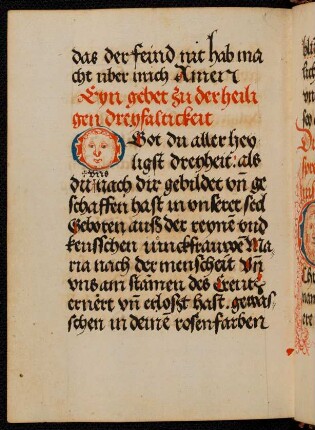 das der feind nit hab ma
cht uber mich Amen
Eyn gebet zu der heili
gen dreyfaltickeit
O Got du aller hey
ligst dreyheit als
du uns nach dir gebildet vn̄ ge
schaffen hast in unseret sel
Geboren auß der reynen vnd
keusschen iunckfrauwe Ma
ria nach der menscheit Vn̄
vns am stamen des Creutz
ernert vn̄ erloßt hast. gewas
schen in deinē rosenfarben